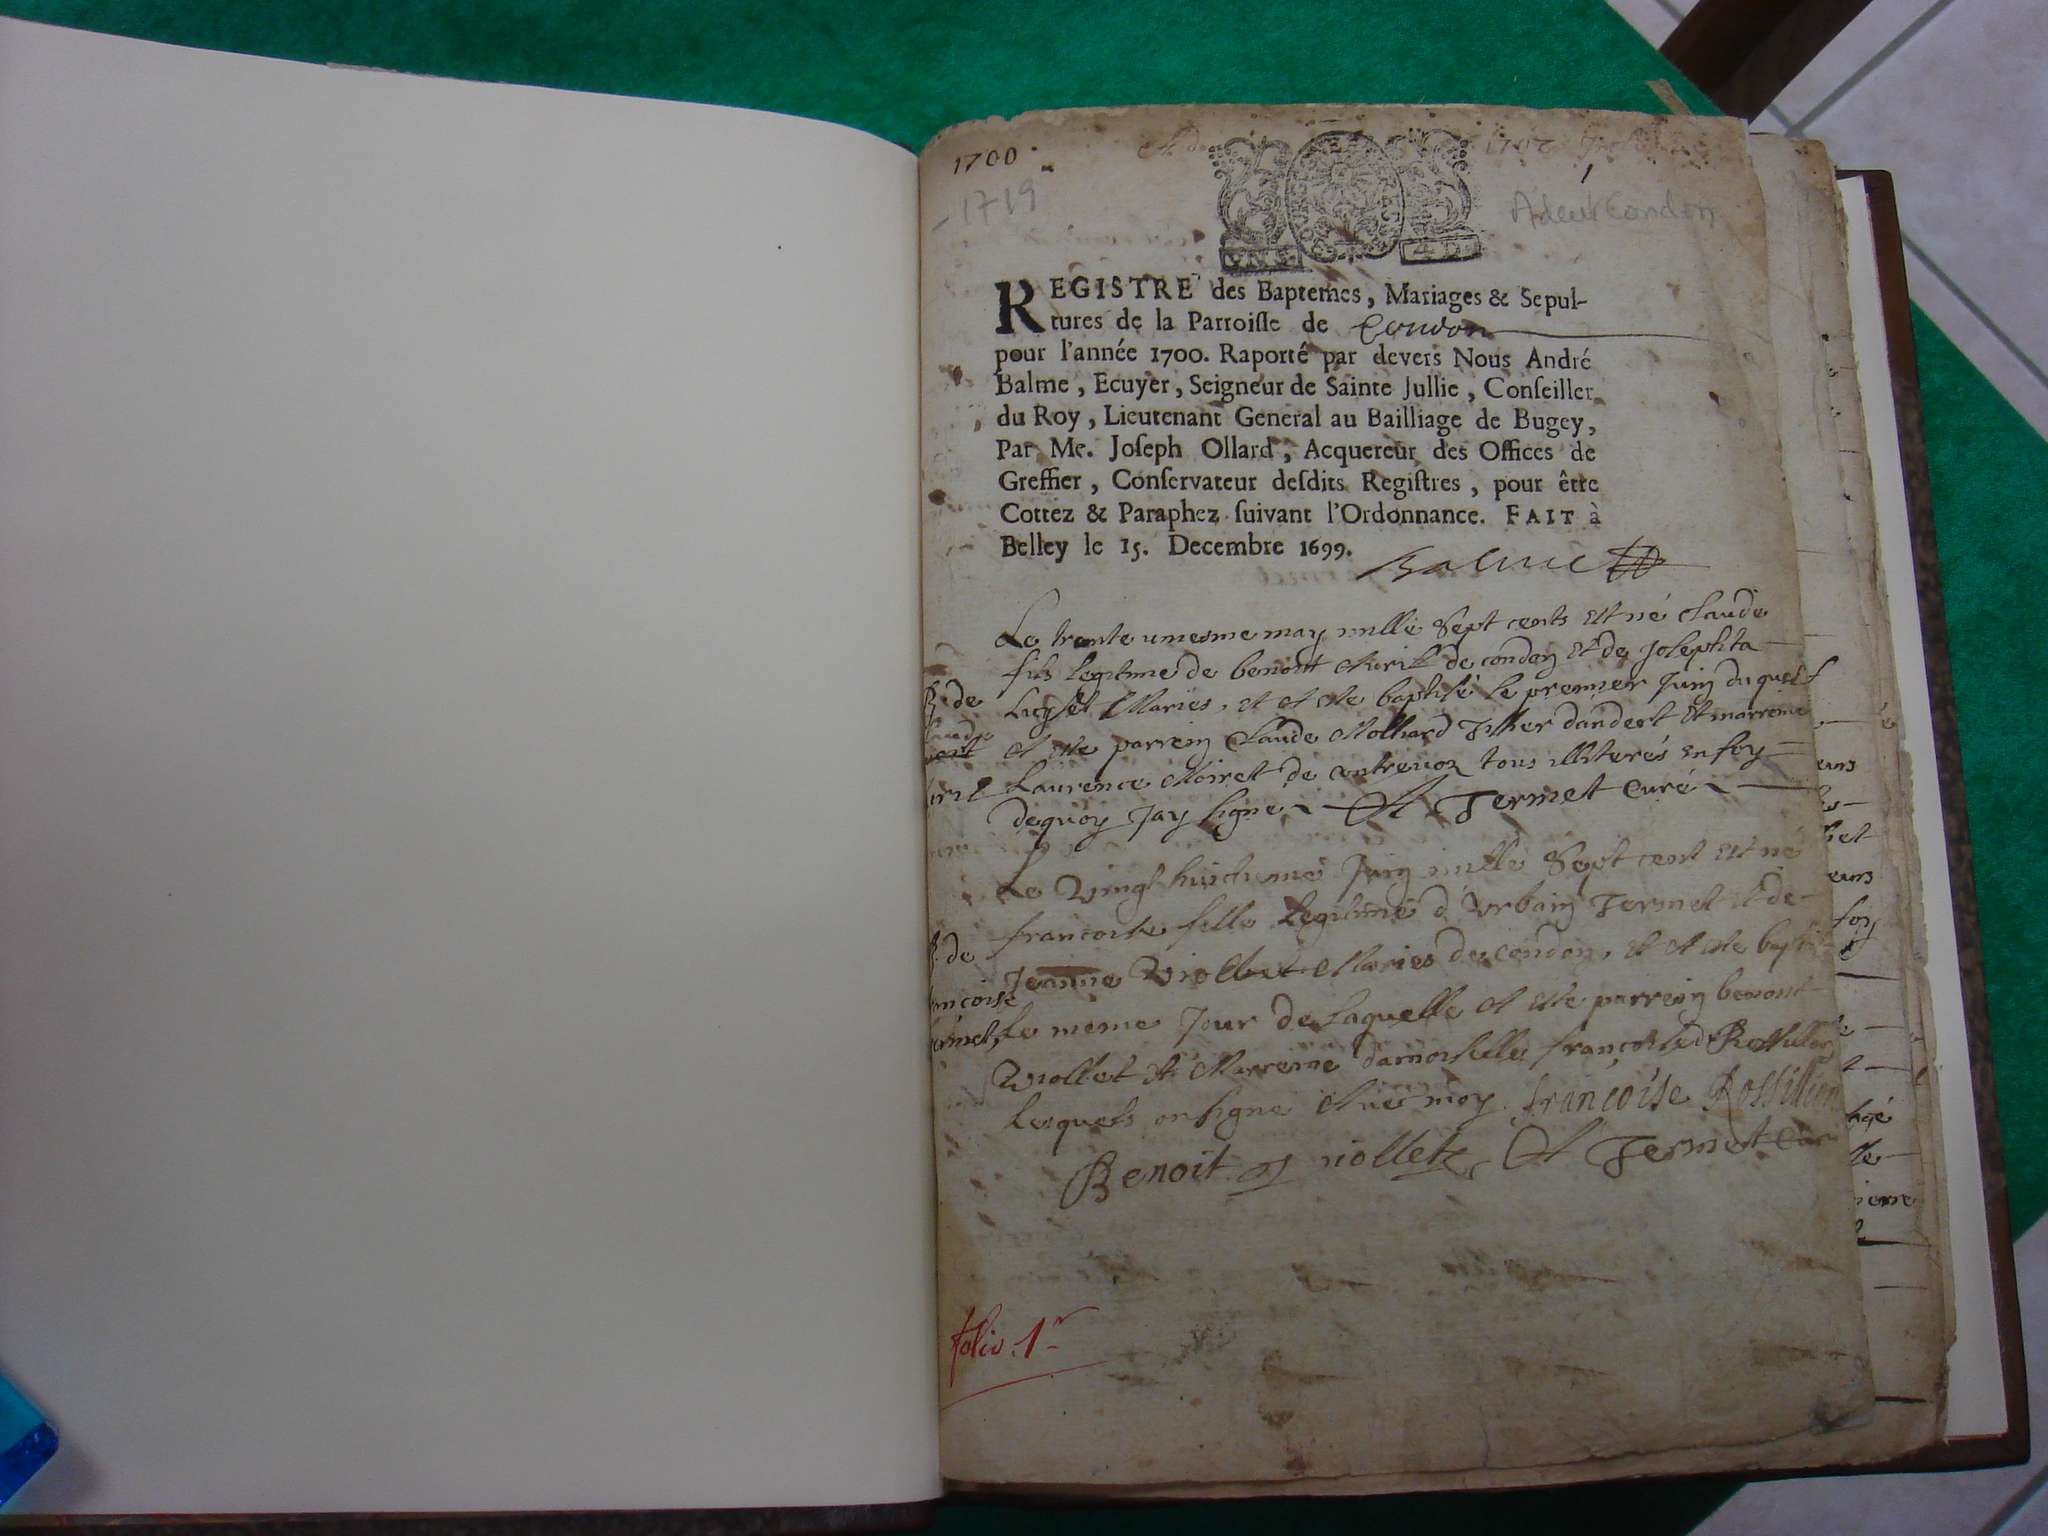 1700
- 1719
1
Andert Condon
REGISTRE des Baptemes, Mariages & Sepul-
tures de la Parroisse de Condon
pour l'année 1700. Raporté par devers Nous André
Balme, Ecuyer, Seigneur de Sainte Jullie, Conseiller
du Roy, Lieutenant General au Bailliage de Bugey,
Par Me. Joseph Ollard, Acquereur des Offices de
Greffier, Conservateur desdits Registres, pour être
Cottez & Paraphez suivant l'Ordonnance. FAIT à
Belley le 15. Decembre 1699.
Balme
Le trente uniesme may mille Sept cents Est né Claude
fils legitime de benoit de condon Et de Josephta
Mariés, et a este baptisé le premier Juin duquel
a este parrein Claude Molliard d'andert Et marreine
Laurence Moiret de contrevoz tous illiterés en foy
dequoy Jay signe A Termet Curé
B. de
Le vingt huictieme Juin mille Sept cent Est né
francoise fille legitime d'Urbain Termet Et de
Jeanne Viollet Mariés de condon, et a este baptisé
le meme Jour de laquelle a este parrein benoit
Viollet et Marreine damoiselle francoise Rossillon
lesquels ont signe avec moy. françoise Rossillon
Benoit viollet A Termet Curé
B. de
ancoise
ermet,
folio. 1r